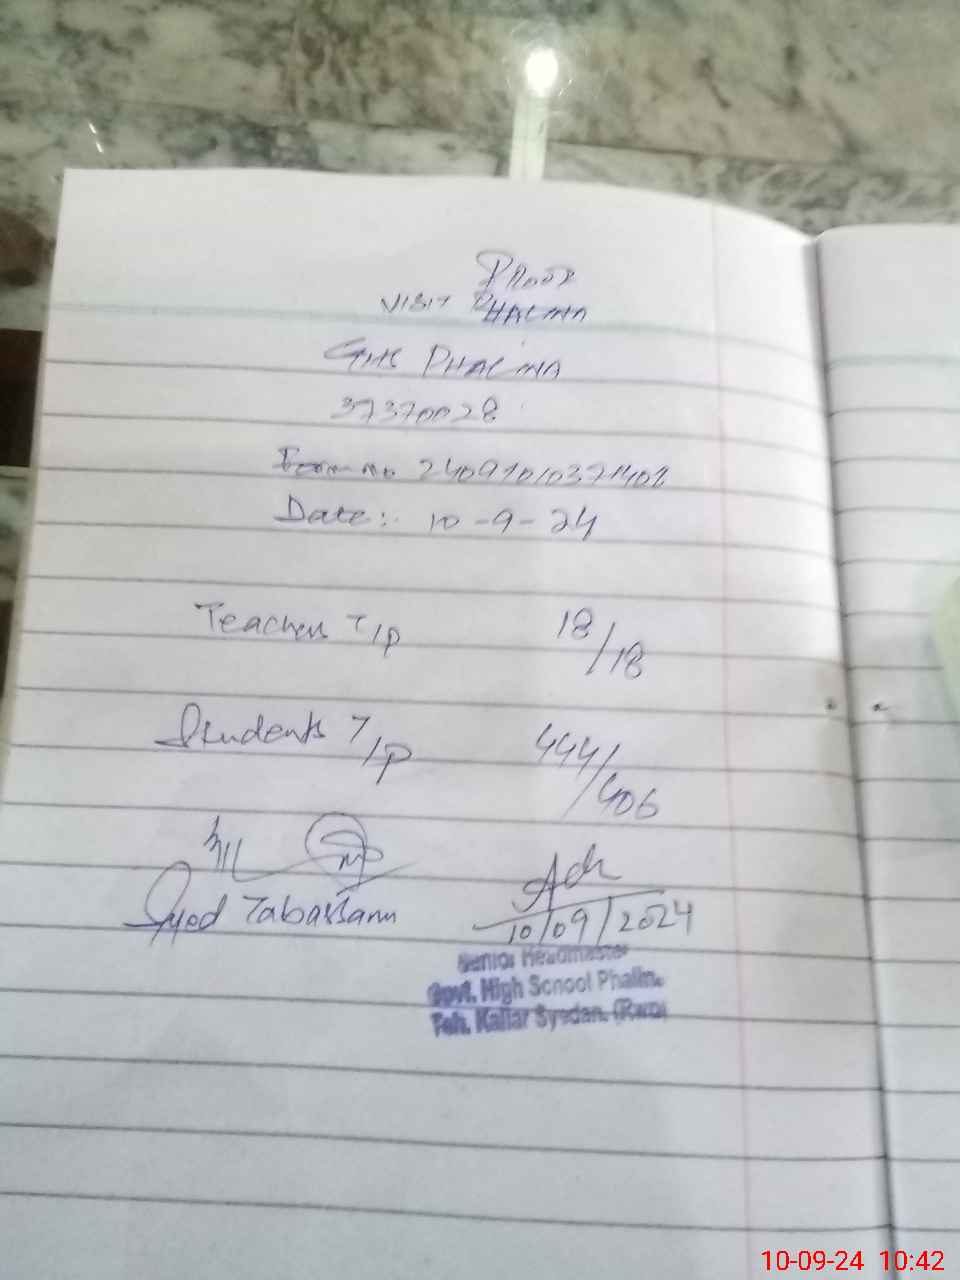 Proof
VISIT PHALINA
GHS PHALINA
37370028
Form no
Date:- 10-9-24
Teachers T/P 18/18
Students T/P 444/406
Syed Tabassam
10/09/2024
Senior Headmaster
Govt. High School Phalina
Teh. Kallar Syedan. (Rwp)
10-09-24 10:42